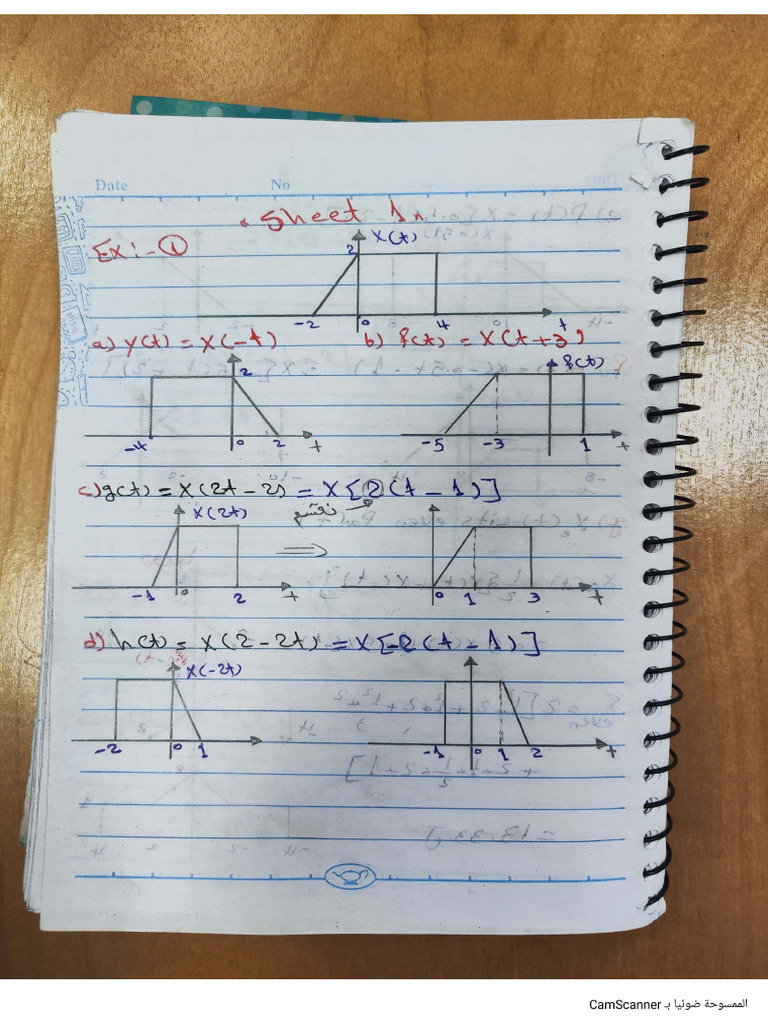 Date No
. Sheet 1
Ex:- ①
x(t)
2
-2 0 4 t
a) y(t) = x(-t) b) f(t) = x(t+3)
2 f(t)
-4 0 2 t -5 -3 1 t
c) g(t) = x(2t - 2) = x[2(t - 1)]
x(2t) نقسم
⇒
-1 0 2 t 0 1 3 t
d) h(t) = x(2 - 2t) = x[-2(t - 1)]
x(-2t)
-2 0 1 -1 0 1 2 t
الممسوحة ضوئيا بـ CamScanner